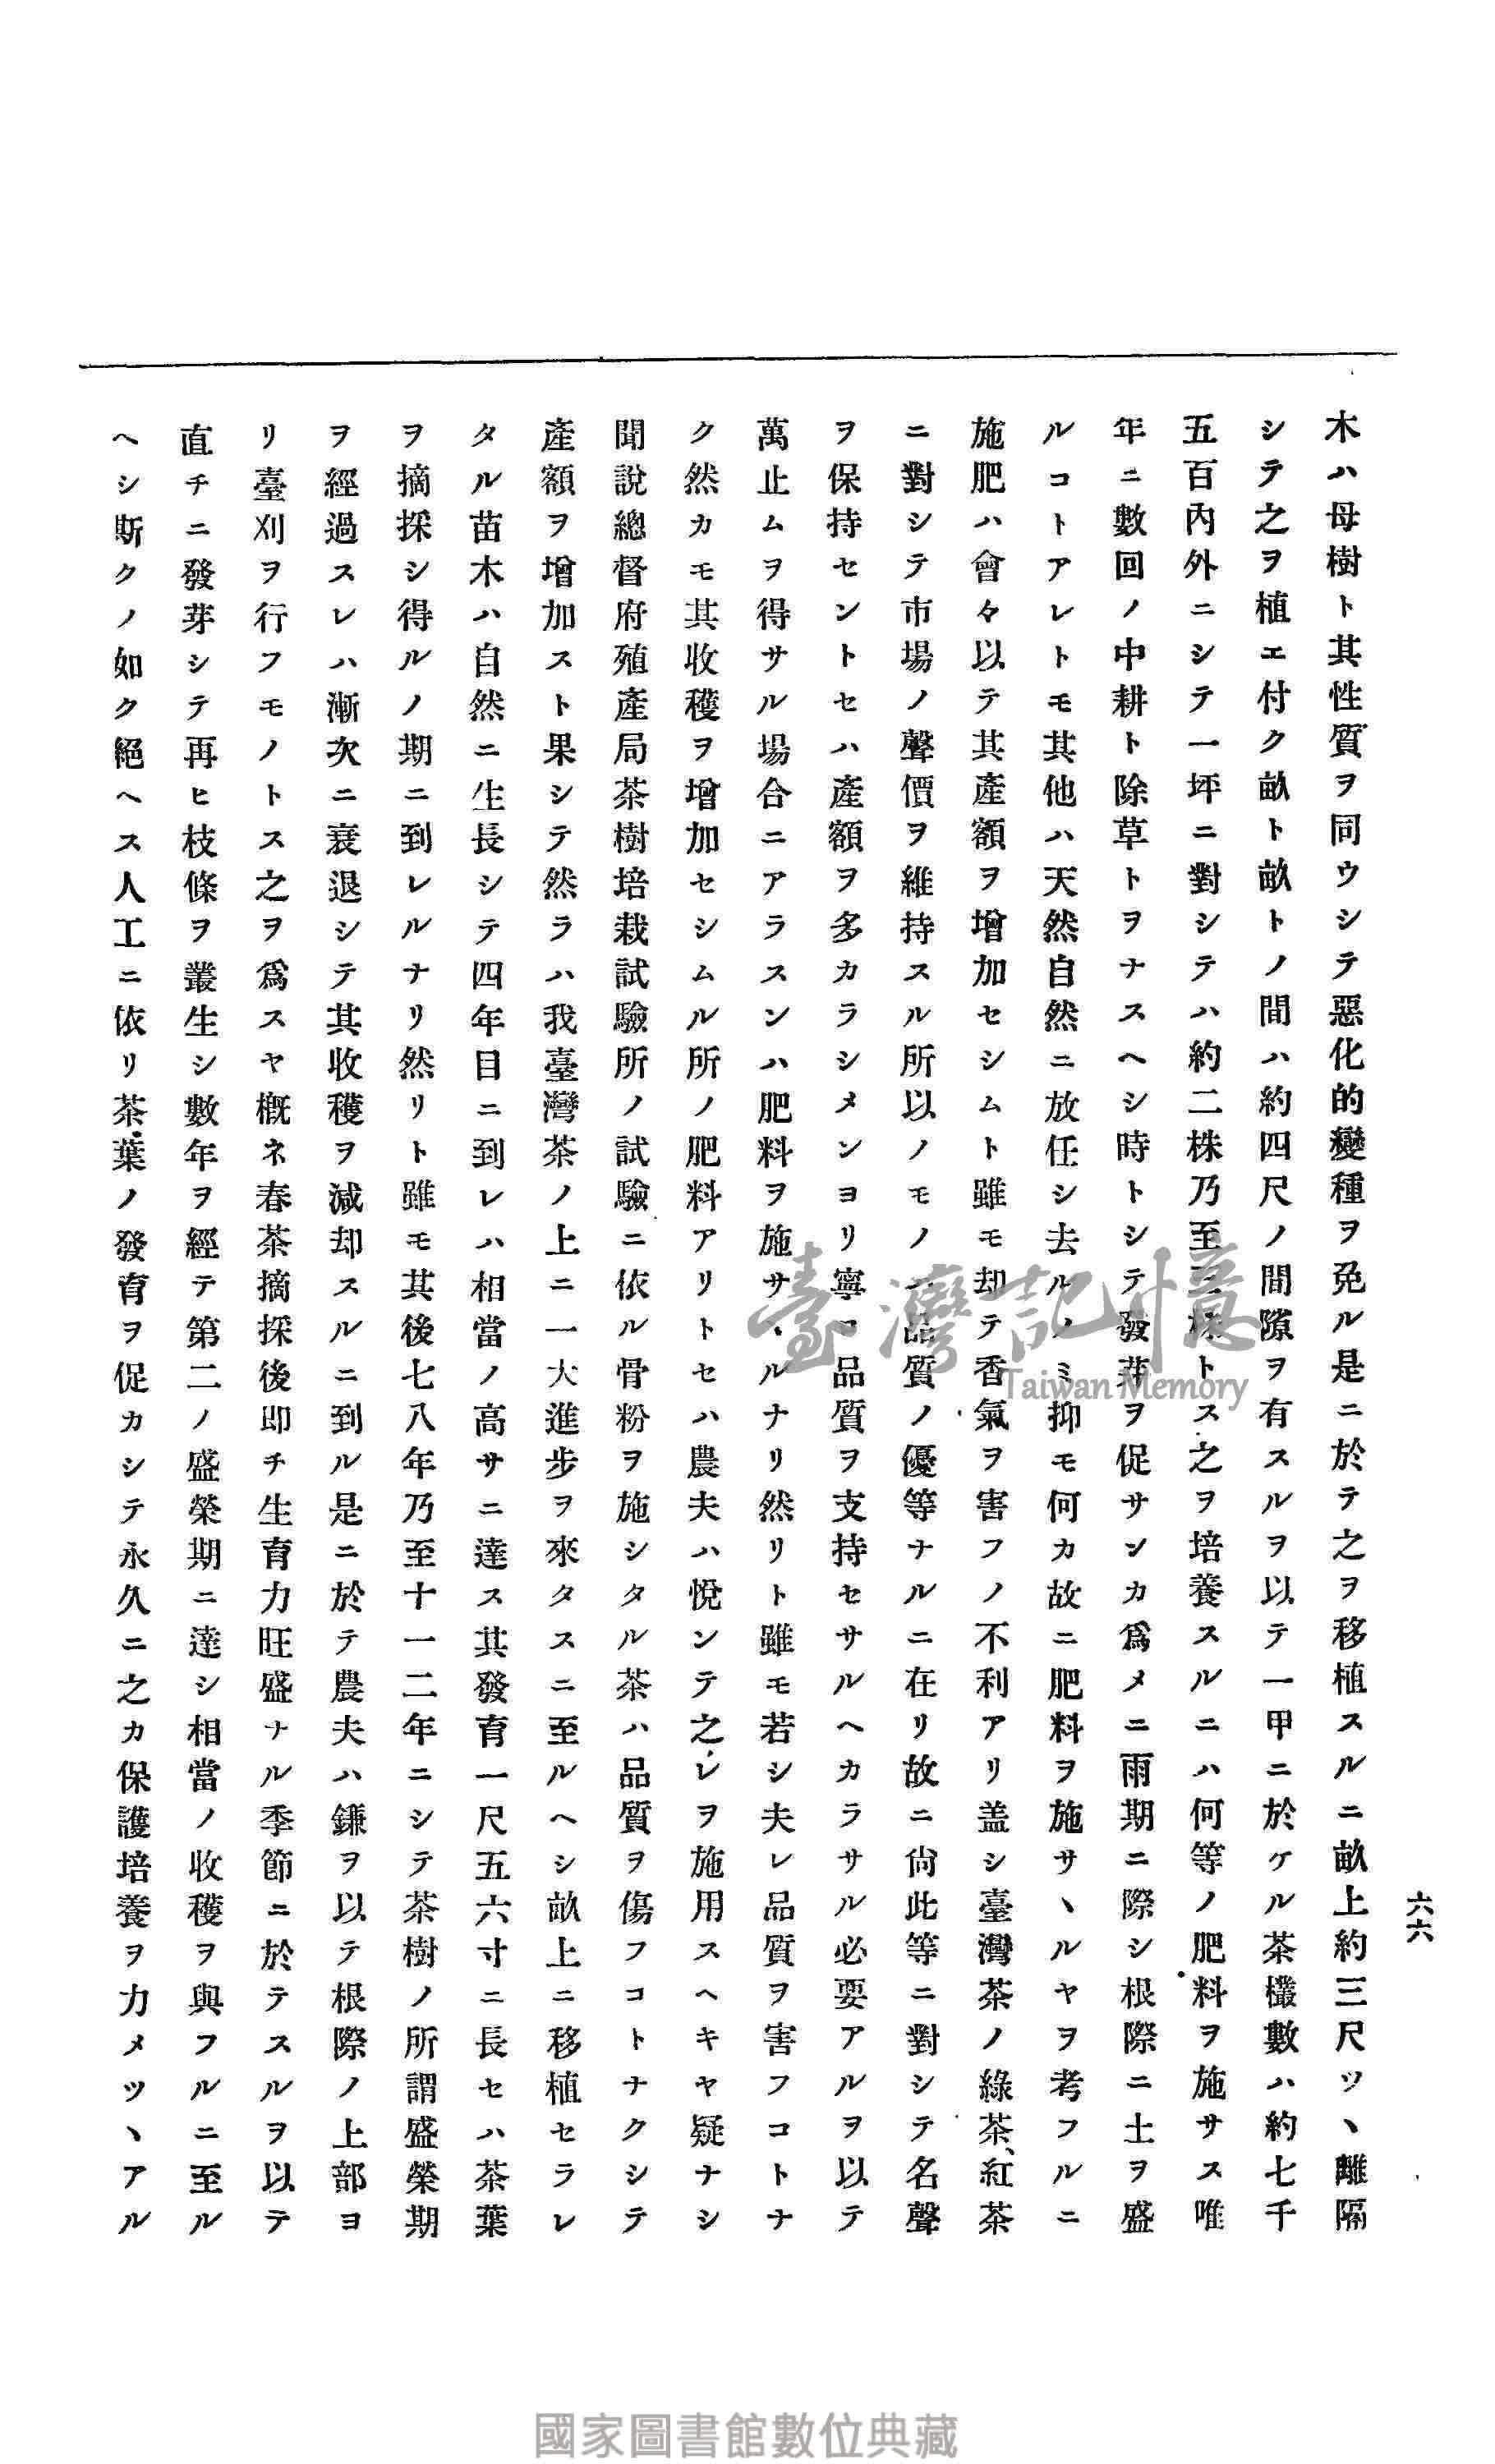 六六
木ハ母樹ト其性質ヲ同ウシテ惡化的變種ヲ免ル是ニ於テ之ヲ移植スルニ畝上約三尺ツヽ離隔
シテ之ヲ植エ付ク畝ト畝トノ間ハ約四尺ノ間隙ヲ有スルヲ以テ一甲ニ於ケル茶欉數ハ約七千
五百內外ニシテ一坪ニ對シテハ約二株乃至三株トス之ヲ培養スルニハ何等ノ肥料ヲ施サス唯
年ニ數回ノ中耕ト除草トヲナスヘシ時トシテ發芽ヲ促サンカ爲メニ雨期ニ際シ根際ニ土ヲ盛
ルコトアレトモ其他ハ天然自然ニ放任シ去ルノミ抑モ何カ故ニ肥料ヲ施サヽルヤヲ考フルニ
施肥ハ會々以テ其產額ヲ增加セシムト雖モ却テ香氣ヲ害フノ不利アリ盖シ臺灣茶ノ綠茶、紅茶
ニ對シテ市場ノ聲價ヲ維持スル所以ノモノハ品質ノ優等ナルニ在リ故ニ尙此等ニ對シテ名聲
ヲ保持セントセハ產額ヲ多カラシメンヨリ寧ロ品質ヲ支持セサルヘカラサル必要アルヲ以テ
萬止ムヲ得サル場合ニアラスンハ肥料ヲ施サヽルナリ然リト雖モ若シ夫レ品質ヲ害フコトナ
ク然カモ其收穫ヲ增加セシムル所ノ肥料アリトセハ農夫ハ悅ンテ之レヲ施用スヘキヤ疑ナシ
聞說總督府殖產局茶樹培栽試驗所ノ試驗ニ依ル骨粉ヲ施シタル茶ハ品質ヲ傷フコトナクシテ
產額ヲ增加スト果シテ然ラハ我臺灣茶ノ上ニ一大進步ヲ來タスニ至ルヘシ畝上ニ移植セラレ
タル苗木ハ自然ニ生長シテ四年目ニ到レハ相當ノ高サニ達ス其發育一尺五六寸ニ長セハ茶葉
ヲ摘採シ得ルノ期ニ到レルナリ然リト雖モ其後七八年乃至十一二年ニシテ茶樹ノ所謂盛榮期
ヲ經過スレハ漸次ニ衰退シテ其收穫ヲ減却スルニ到ル是ニ於テ農夫ハ鎌ヲ以テ根際ノ上部ヨ
リ臺刈ヲ行フモノトス之ヲ爲スヤ槪ネ春茶摘採後卽チ生育力旺盛ナル季節ニ於テスルヲ以テ
直チニ發芽シテ再ヒ枝條ヲ叢生シ數年ヲ經テ第二ノ盛榮期ニ達シ相當ノ收穫ヲ與フルニ至ル
ヘシ斯クノ如ク絕ヘス人工ニ依リ茶葉ノ發育ヲ促カシテ永久ニ之カ保護培養ヲ力メツヽアル
臺灣記憶
Taiwan Memory
國家圖書館數位典藏